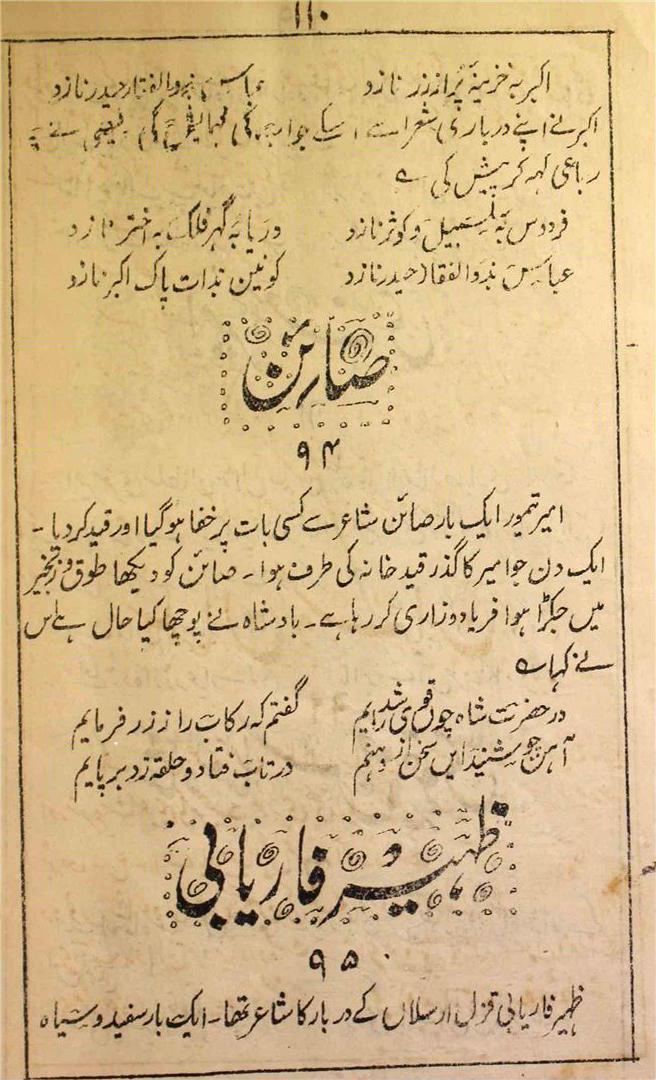 ۱۱۰
اکبر بہ خزینۂ پُر از زر نازد عباس بذوالفقار حیدر نازد
اکبر نے اپنے درباری شعرا سے اسکے جواب کی فرمائش کی فیضی نے یہ
رباعی کہہ کر پیش کی ے
فردوس بہ سلسبیل و کوثر نازد دریا بہ گہر فلک بہ اختر نازد
عباس بذوالفقار حیدر نازد کونین بذات پاک اکبر نازد
صائن
۹۴
امیر تیمور ایک بار صائن شاعر سے کسی بات پر خفا ہو گیا اور قید کر دیا ۔
ایک دن جو امیر کا گذر قید خانہ کی طرف ہوا ۔ صائن کو دیکھا طوق و زنجیر
میں جکڑا ہوا فریاد و زاری کر رہا ہے ۔ بادشاہ نے پوچھا کیا حال ہے اس
نے کہا ے
در حضرت شاہ چوں قوی شد رایم گفتم کہ رکاب را ز زر فرمایم
آہن چو شنید ایں سخن از دہنم در تاب فتاد و حلقہ زد بر پایم
ظہیر فاریابی
۹۵
ظہیر فاریابی قزل ارسلاں کے دربار کا شاعر تھا ۔ ایک بار سفید و سیاہ